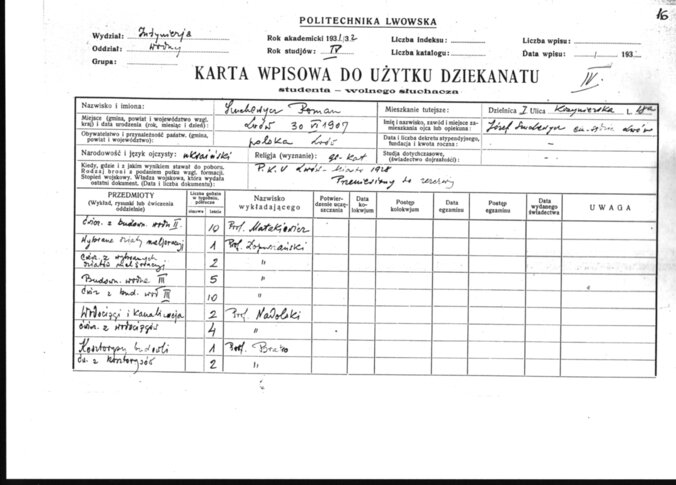 16
POLITECHNIKA LWOWSKA
Wydział: Inżynierja
Rok akademicki 1931/32
Liczba indeksu:
Liczba wpisu:
Oddział: Wodny
Rok studjów: IV
Liczba katalogu:
Data wpisu: 193
Grupa:
KARTA WPISOWA DO UŻYTKU DZIEKANATU
IV.
studenta – wolnego słuchacza
Nazwisko i imiona: Suchedyr Roman
Mieszkanie tutejsze: Dzielnica I Ulica L.
Miejsce (gmina, powiat i województwo wzgl. kraj) i data urodzenia (rok, miesiąc i dzień): Lwów 30 VI 1907
Imię i nazwisko, zawód i miejsce zamieszkania ojca lub opiekuna: Józef Lwów
Obywatelstwo i przynależność państw. (gmina, powiat i województwo): polska Lwów
Data i liczba dekretu stypendyjnego, fundacja i kwota roczna: –
Narodowość i język ojczysty: ukraiński
Religja (wyznanie): gr. kat
Studja dotychczasowe, (świadectwo dojrzałości): –
Kiedy, gdzie i z jakim wynikiem stawał do poboru. Rodzaj broni z podaniem pułku wzgl. formacji. Stopień wojskowy. Władza wojskowa, która wydała ostatni dokument. (Data i liczba dokumentu): P.K.U Lwów-Miasto 1928
Przeniesiony do rezerwy
PRZEDMIOTY
(Wykład, rysunki lub ćwiczenia oddzielnie)
Liczba godzin w tygodniu, półrocze
zimowe letnie
Nazwisko wykładającego
Potwierdzenie uczęszczania
Data kolokwjum
Postęp kolokwjum
Data egzaminu
Postęp egzaminu
Data wydanego świadectwa
UWAGA
Ćwicz. z budown. wodn II 10 Prof. Matakiewicz
Wybrane działy meljoracyj 1 Prof. Łopuszański
Ćwicz. z wybranych działów meljoracyj 2 "
Budown. wodne III 5 "
Ćwicz. z bud. wod III 10 "
Wodociągi i kanalizacja 2 Prof. Nadolski
Ćwicz. z wodociągów 4 "
Kosztorysy budowli 1 Prof.
Ćw. z kosztorysów 2 "